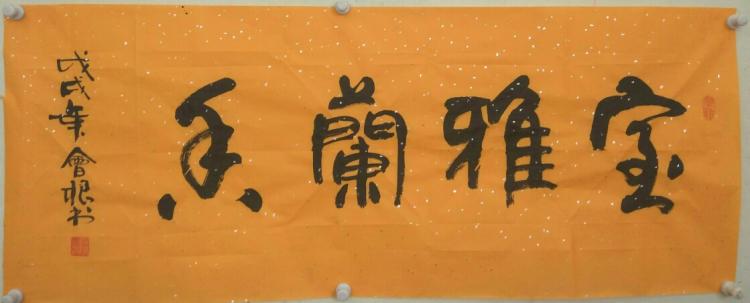 室雅蘭香
戊戌年會根书